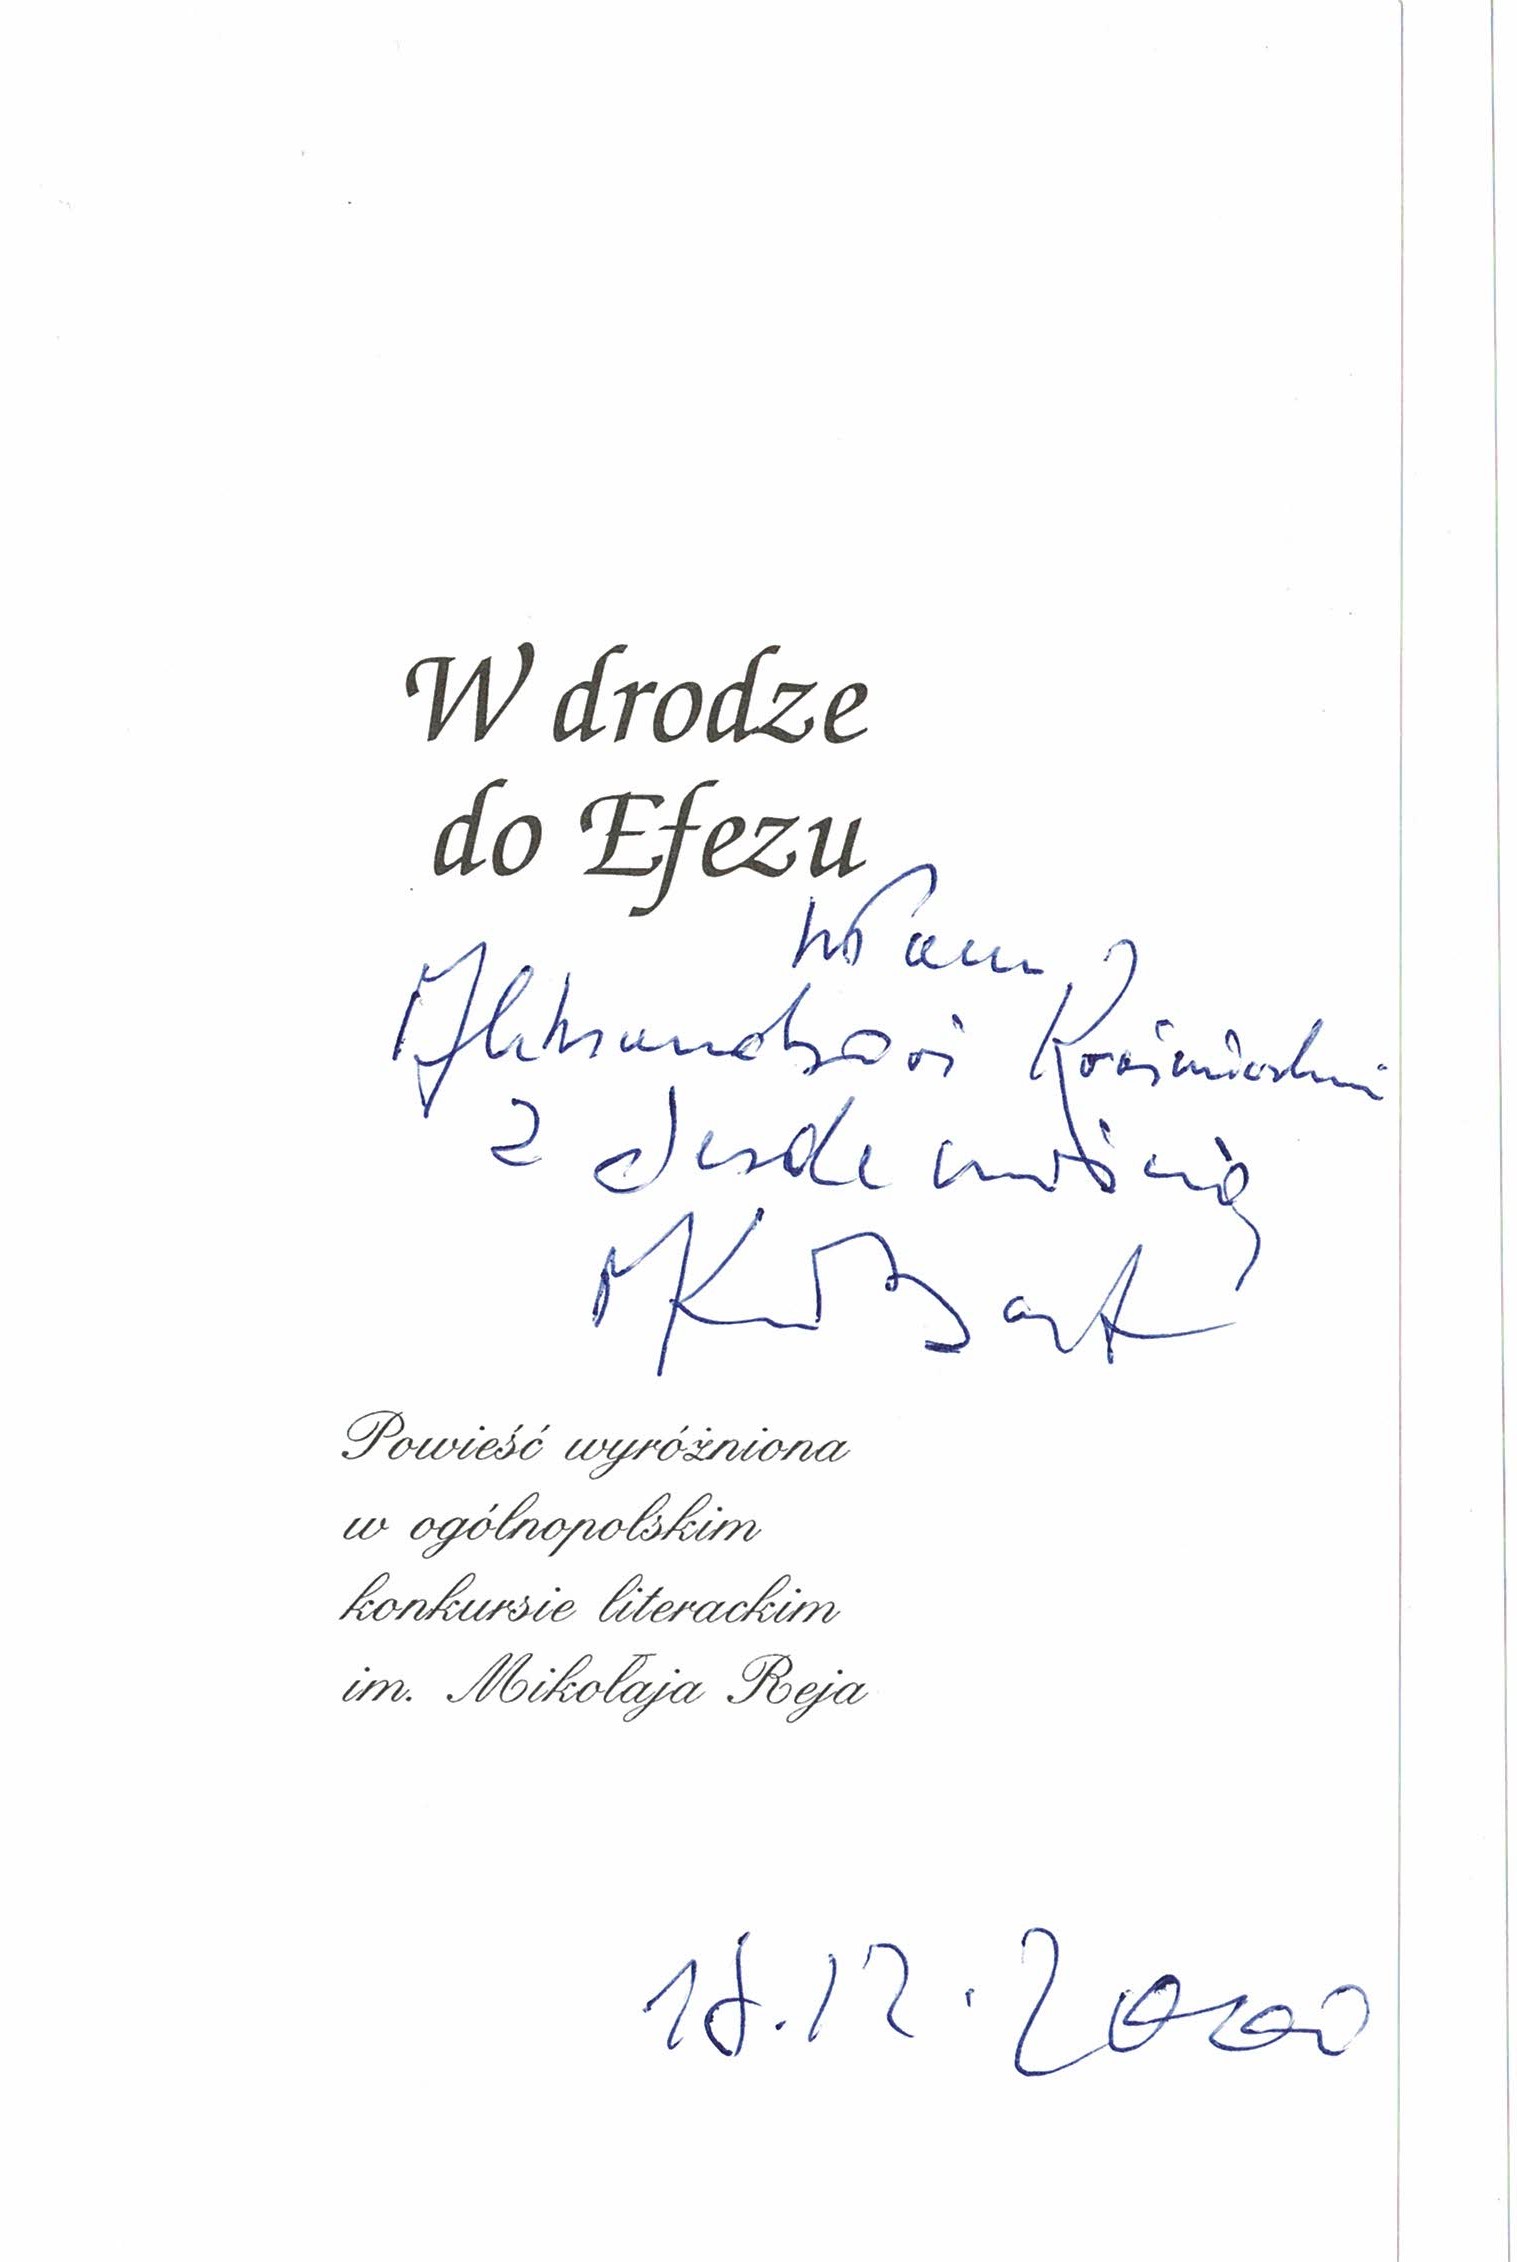 W drodze
do Efezu
Panu
Aleksandrowi
z serdecznością
Powieść wyróżniona
w ogólnopolskim
konkursie literackim
im. Mikołaja Reja
18.12.2020